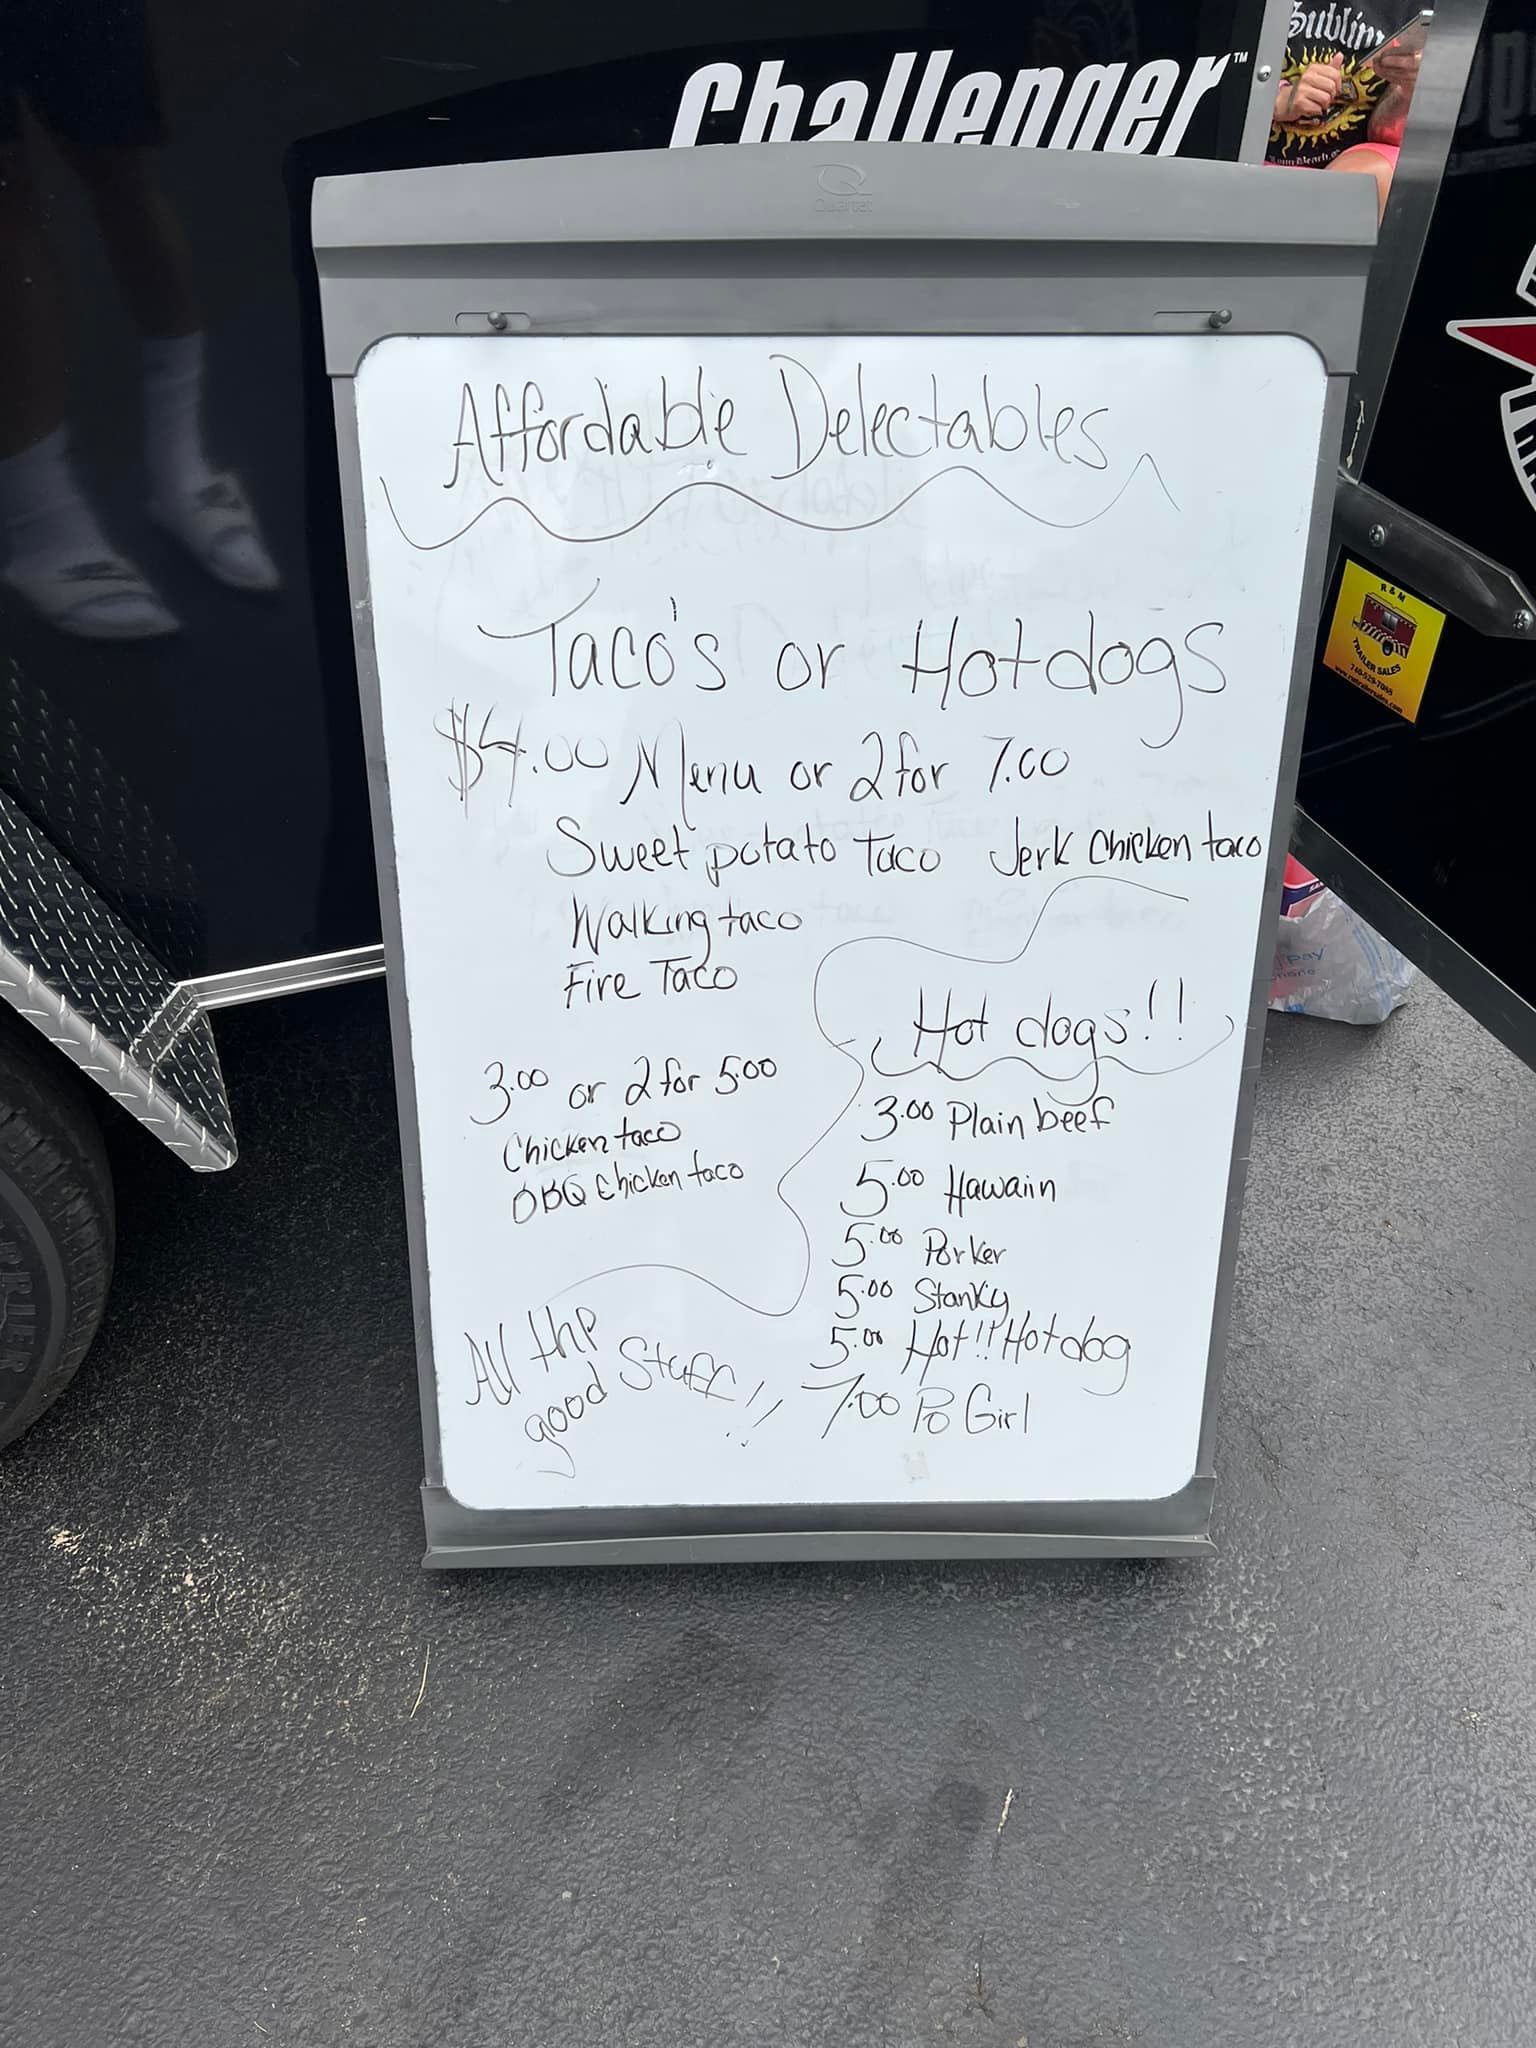 Sublime
Challenger™
Quartet
Affordable Delectables
Taco's or Hotdogs
$4.00 Menu or 2 for 7.00
Sweet potato Taco Jerk Chicken taco
Walking taco
Fire Taco
3.00 or 2 for 5.00
Chicken taco
BBQ Chicken taco
Hot dogs!!
3.00 Plain beef
5.00 Hawaiin
5.00 Porker
5.00 Stanky
5.00 Hot!! Hotdog
7.00 Po Girl
All the
good Stuff!!
R & M
TRAILER SALES
740-529-7055